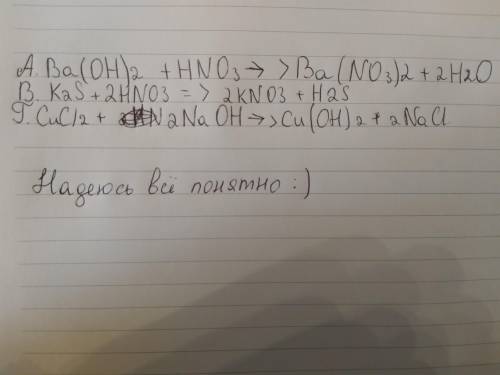 A. Ba(OH)2 + HNO3 → > Ba(NO3)2 + 2H2O
B. K2S + 2HNO3 = > 2KNO3 + H2S
Г. CuCl2 + 2NaOH → > Cu(OH)2 + 2NaCl
Надеюсь всё понятно :)